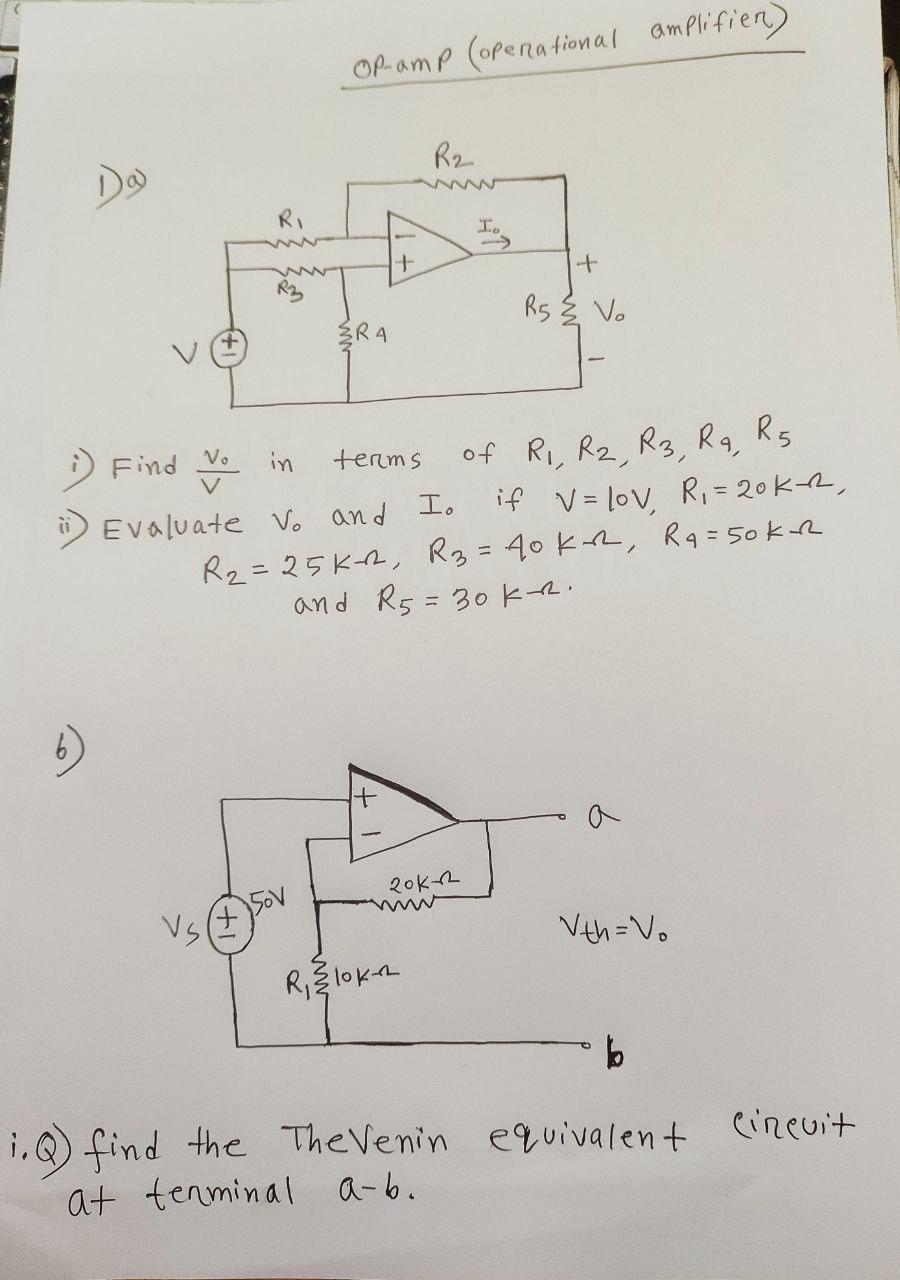 OP-amp (operational amplifier)
1) a)
R2
R1
I₀
R3
−
+
+
R4
R5
V₀
V
+
−
−
i) Find V₀/V in terms of R1, R2, R3, R4, R5
ii) Evaluate V₀ and I₀ if V = 10V, R1 = 20 K-Ω,
R2 = 25 K-Ω, R3 = 40 K-Ω, R4 = 50 K-Ω
and R5 = 30 K-Ω.
b)
+
−
a
20K-Ω
50V
Vs
+
−
Vth = V₀
R1
10K-Ω
b
i.Q) find the Thevenin equivalent circuit
at terminal a-b.